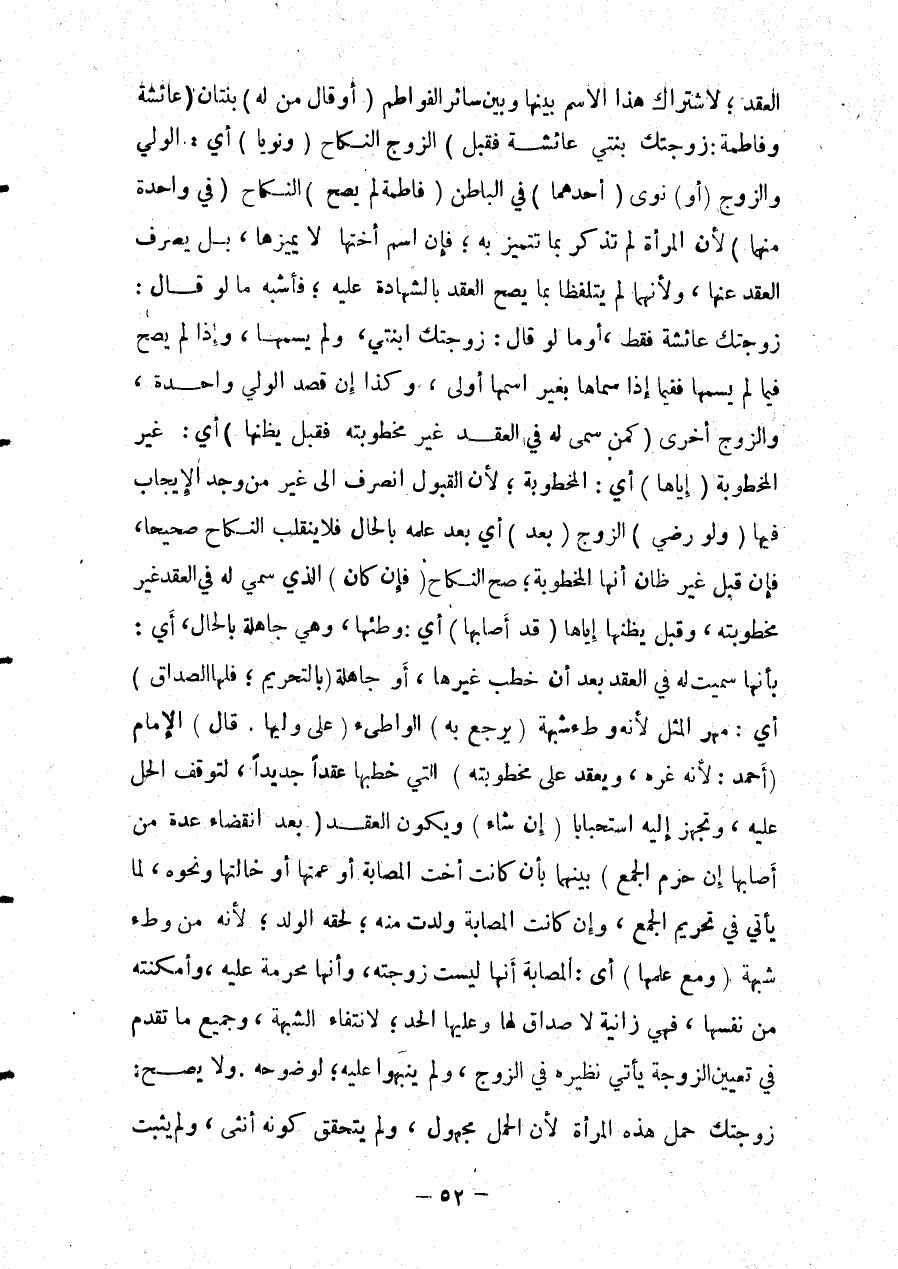 العقد ؛ لاشتراك هذا الاسم بينها وبين سائر الفواطم ( أو قال من له ) بنتان ( عائشة
وفاطمة : زوجتك بنتي عائشــة فقبل ) الزوج النــكاح ( ونويا ) أي : الولي
والزوج ( أو ) نوى ( أحدهما ) في الباطن ( فاطمة لم يصح ) النــكاح ( في واحدة
منها ) لأن المرأة لم تذكر بما تتميز به ؛ فإن اسم أختها لا يميزها ، بــل يصرف
العقد عنها ، ولأنهما لم يتلفظا بما يصح العقد بالشهادة عليه ؛ فأشبه ما لو قــال :
زوجتك عائشة فقط ، أو ما لو قال : زوجتك ابنتي ، ولم يسمهــا ، وإذا لم يصح
فيما لم يسمها ففيما إذا سماها بغير اسمها أولى ، وكذا إن قصد الولي واحــدة ،
والزوج أخرى ( كمن سمى له في العقــد غير مخطوبته فقبل يظنها ) أي : غير
المخطوبة ( إياها ) أي : المخطوبة ؛ لأن القبول انصرف الى غير من وجد الإيجاب
فيها ( ولو رضي ) الزوج ( بعد ) أي بعد علمه بالحال فلا ينقلب النــكاح صحيحا ،
فإن قبل غير ظان أنها المخطوبة ؛ صح النــكاح ( فإن كان ) الذي سمي له في العقد غير
مخطوبته ، وقبل يظنها إياها ( قد أصابها ) أي : وطئها ، وهي جاهلة بالحال ، أي :
بأنها سميت له في العقد بعد أن خطب غيرها ، أو جاهلة ( بالتحريم ؛ فلها الصداق )
أي : مهر المثل لأنه وطء شبهة ( يرجع به ) الواطىء ( على وليها . قال ) الإمام
( أحمد : لأنه غره ، ويعقد على مخطوبته ) التي خطبها عقداً جديداً ، لتوقف الحل
عليه ، وتجهز إليه استحبابا ( إن شاء ) ويكون العقــد ( بعد انقضاء عدة من
أصابها إن حرم الجمع ) بينهما بأن كانت أخت المصابة أو عمتها أو خالتها ونحوه ، لما
يأتي في تحريم الجمع ، وإن كانت المصابة ولدت منه ؛ لحقه الولد ؛ لأنه من وطء
شبهة ( ومع علمها ) أى : المصابة أنها ليست زوجته ، وأنها محرمة عليه ، وأمكنته
من نفسها ، فهي زانية لا صداق لها وعليها الحد ؛ لانتفاء الشبهة ، وجميع ما تقدم
في تعيين الزوجة يأتي نظيره في الزوج ، ولم ينبهوا عليه ؛ لوضوحه . ولا يصــح :
زوجتك حمل هذه المرأة لأن الحمل مجهول ، ولم يتحقق كونه أنثى ، ولم يثبت
– ٥٢ –